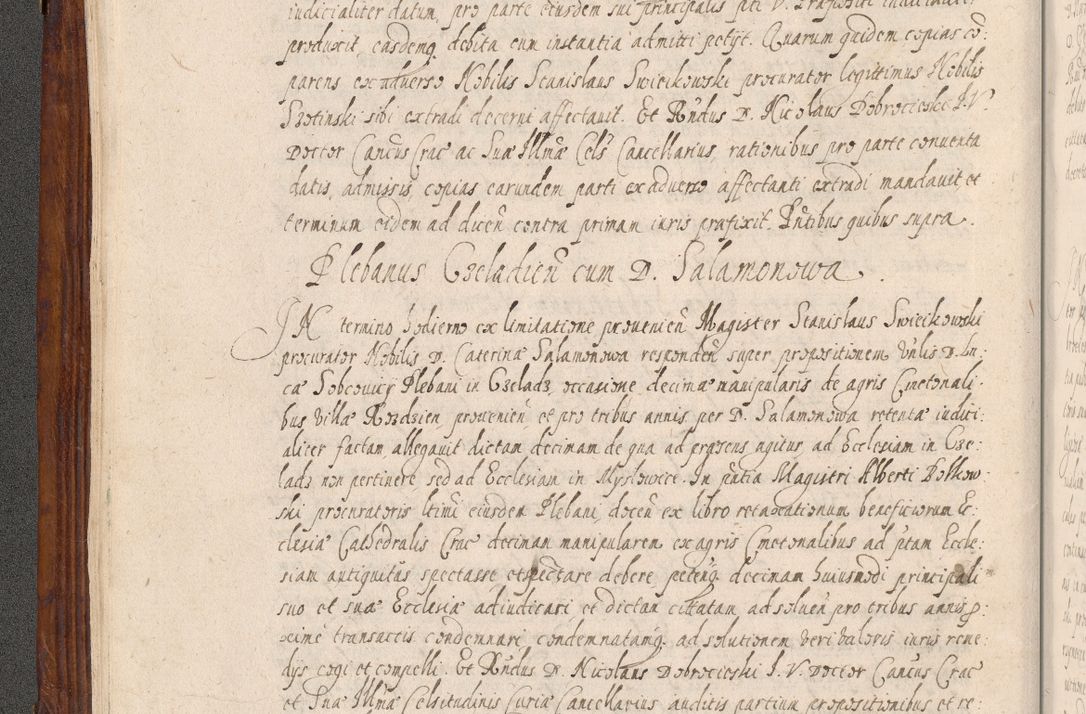 iudicialiter datum, pro parte eiusdem sui principalis pti D. Præpositi iudicialiter
produxit, easdemq debita cum instantia admitti petijt. Quarum quidem copias co:
parens ex adverso Nobilis Stanislaus Swiecikowski procurator legittimus Nobilis
Szotinski sibi extradi decerni affectauit. Et Rndus D. Nicolaus Dobrocieski I. V.
Doctor Cancus Crac ac Suæ Illmæ Cels Cancellarius, rationibus pro parte conuenta
datis, admissis, copias earundem parti ex aduerso affectanti extradi mandauit, et
terminum eidem ad dicen contra primam iuris præfixit. Pntibus quibus supra.
Plebanus Czeladien cum D. Salamonowa.
IN termino hodierno ex limitatione prouenien Magister Stanislaus Swiecikowski
procurator Nobilis D. Caterinæ Salamonowa responden super propositionem Vnlis D. Lu:
cæ Sobcovicy Plebani in Czeladz, occasione decimæ manipularis de agris Cmetonali:
bus villæ Rozdzien prouenien et pro tribus annis per D. Salamonowa retentæ iuditi:
aliter factam, allegauit dictam decimam de qua ad præsens agitur, ad Ecclesiam in Cze:
ladz non pertinere, sed ad Ecclesiam in Myslowice. In pntia Magistri Alberti Dolkow
ski procuratoris ltimi eiusdem Plebani, docen ex libro retaxationum beneficiorum Ec:
clesiæ Cathedralis Crac decimam manipularem ex agris Cmetonalibus ad ptam Eccle:
siam antiquitus spectasse et spectare debere, peteñq decimam huiusmodi principali
suo et suæ Ecclesiæ adiudicari, et dictam citatam, ad soluen pro tribus annis p:
xime transactis condemnari, condemnatamq ad solutionem veri valoris iuris reme:
dijs cogi et compelli. Et Rndus D. Nicolaus Dobrocieski I. V. Doctor Cancus Crac
et Suæ Illmæ Celsitudinis Curiæ Cancellarius auditis partium propositionibus et re: